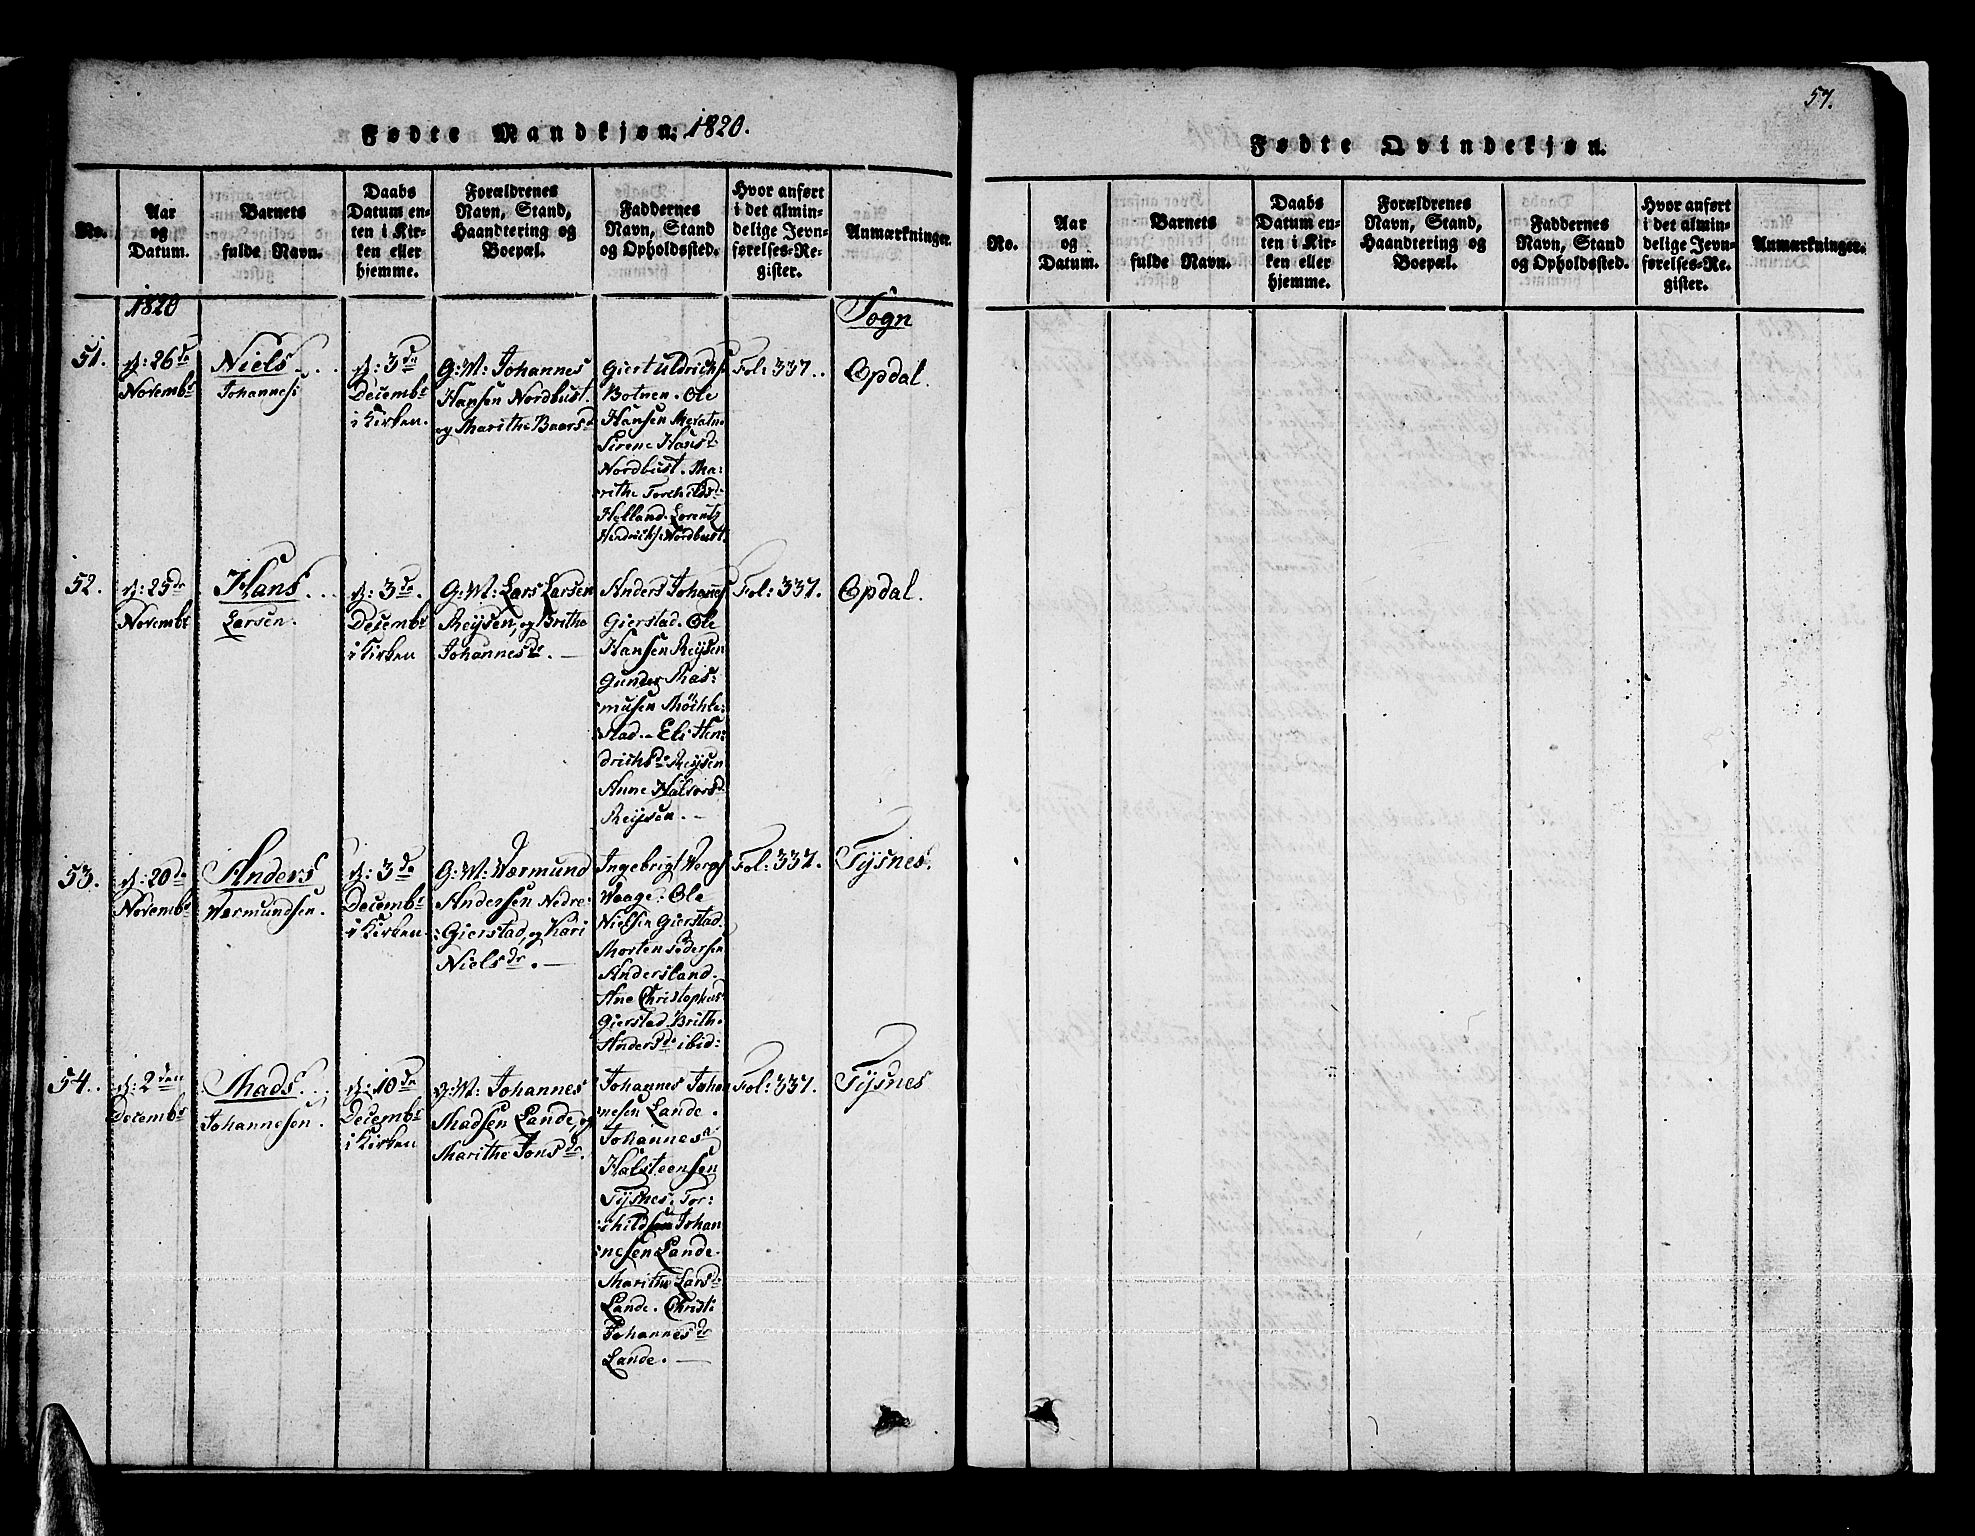 Fødte Mandkjøn: 1820.
No.
Aar
og
Datum.
Barnets
fulde Navn.
Daabs
Datum en-
ten i Kir-
ken eller
hjemme.
Forældrenes
Navn, Stand,
Haandtering og
Boepæl.
Faddernes
Navn, Stand
og Opholdssted.
Hvor anført
i det almin-
delige Jevn-
førelses-Re-
gister.
Anmærkninger.
1820
Sogn
51.
d: 26de
Novembr
Niels
Johannes:
d: 3de
Decembr
i Kirken.
G: M: Johannes
Hansen Nordbust.
og Marithe Baarsd
Giert Uldrichs
Botnen. Ole
Hansen
Sirene Hansd
Nordbust. Ma:
rithe Torchildsd
Helland. Lorentz
Hendrichs: Nordbust.
Fol: 337.
Opdal.
52.
d: 25de
Novembr
Hans
Larsen.
d: 3de
Decembr
i Kirken
G: M: Lars Larsen
Reysen, og Brithe
Johannesdr. —
Anders Johannes
Gierstad. Ole
Hansen Reysen
Gunder Ras:
musen Møchle:
stad. Eli Hen:
drichsdr Reysen
Anne Halvorsd
Reysen. —
Fol: 337.
Opdal.
53.
d: 20de
Novembr
Anders
Wærmundsen.
d: 3de
Decembr
i Kirken.
G: M: Wærmund
Andersen Nedre:
Gierstad, og Kari
Nielsdr. —
Ingebrigt
Waage: Ole
Nielsen Gierstad.
Morten Pedersen
Andersland.
Ane Christophers
Gierstad. Brithe
Andersd ibid:
Fol: 337.
Tysnes.
54.
d: 2den
Decembr
Mads
Johannesen.
d: 10de
Decembr
i Kirken
G: M: Johannes
Madsen Lande, og
Marithe Jonsdr.
Johannes Johan
nesen Lande.
Johannes
Halsteensen
Tysnes. Tor:
childsen Johan
nesen Lande.
Marithe Larsd
Lande. Christi
Johannesdr
Lande. —
Fol: 337.
Tysnes
57.
Fødte Qvindekjøn.
No.
Aar
og
Datum.
Barnets
fulde Navn.
Daabs
Datum en-
ten i Kir-
ken eller
hjemme.
Forældrenes
Navn, Stand,
Haandtering og
Boepæl.
Faddernes
Navn, Stand
og Opholdssted.
Hvor anført
i det almin-
delige Jevn-
førelses-Re-
gister.
Anmærkninger.